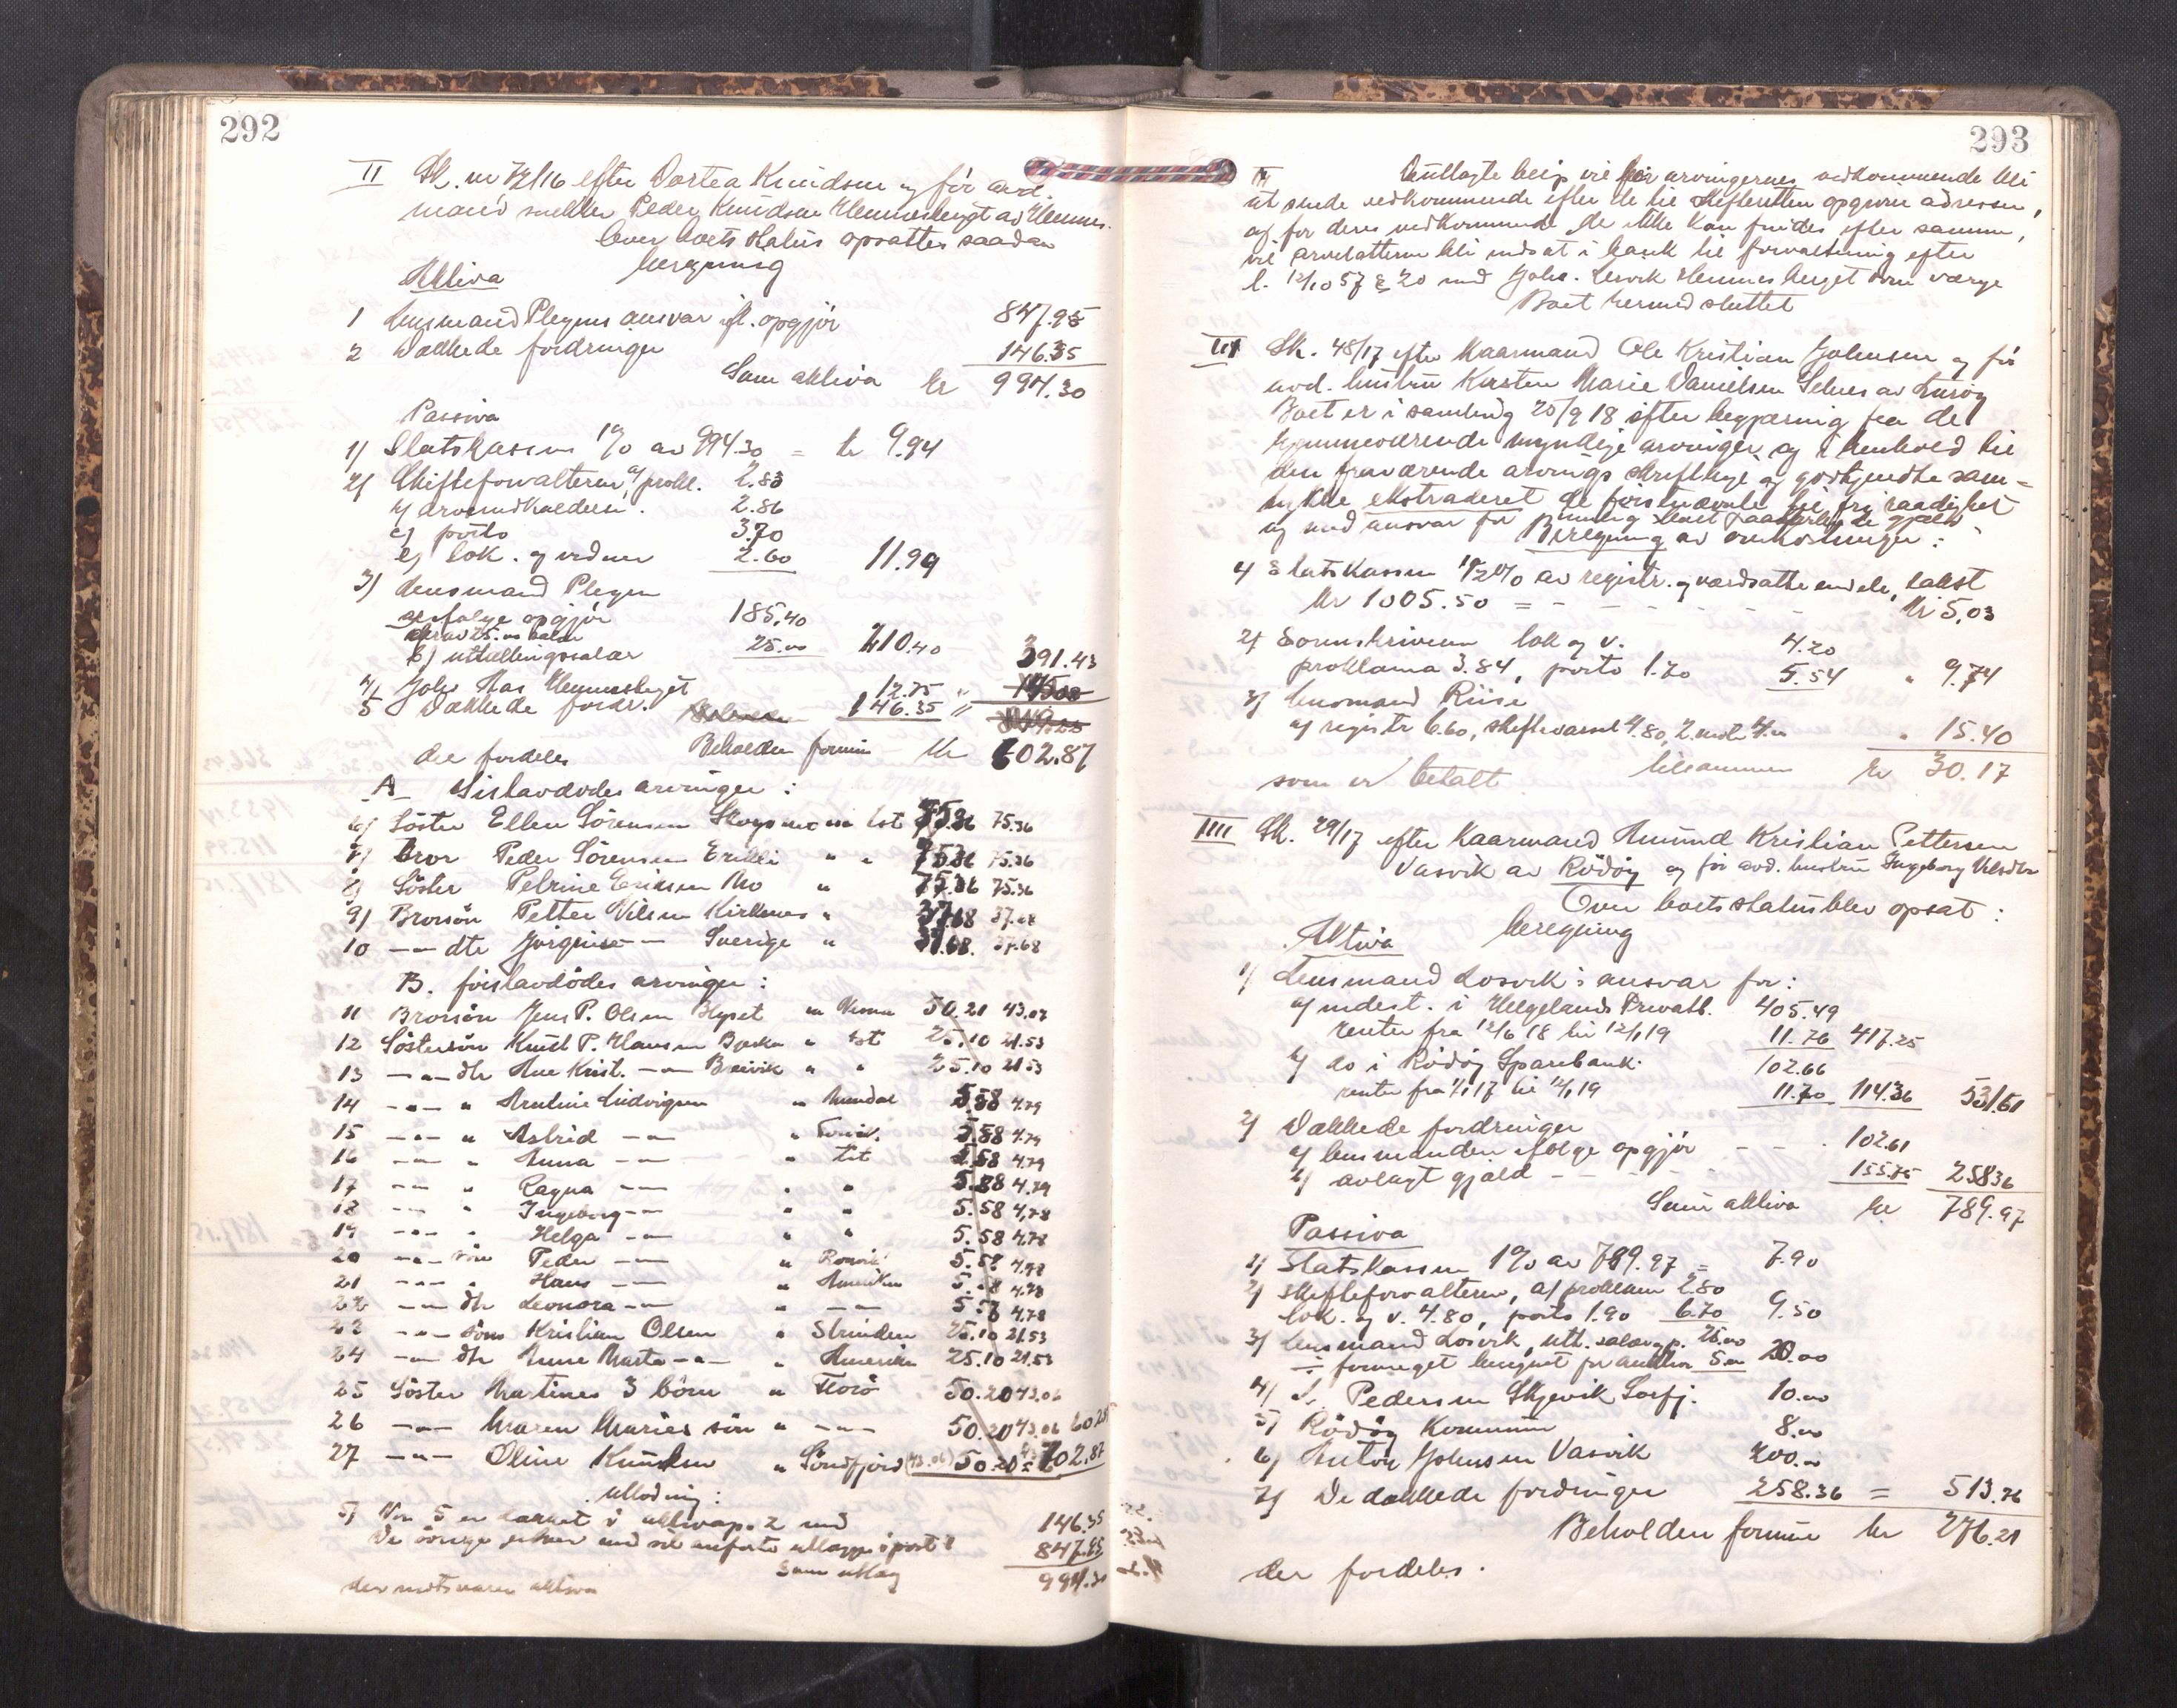 292
II Sk. nr 72/16 efter Dortea Knudsen og før avd.
mand snekker Peder Knudsen Hemnesberget av Hemnes.
Over boets status opsattes saadan
beregning
Aktiva
1 Lensmand Plegens ansvar ifl. opgjør 847.95
2 Dækkede fordringer 146.35
Sum aktiva kr 994.30
Passiva
1) Statskassen 1% av 994.30 = kr 9.94
2) Skifteforvalteren a) prokl. 2.83
b) arveindkaldelsen 2.86
c) porto 3.70
e) lok. og vedmer 2.60 11.99
3) Lensmand Plegen
a) ifølge opgjør 185.40
b) utlodningssalær 25.00 210.40 391.43
4) Johs Aas Hemnesberget 12.75 "
5 Dækkede fordr. 146.35 "
der fordeles Beholden formue kr 602.87
A Sistavdødes arvinger :
6) Søster Ellen Sørensen Skogsmoen lot 75.36 75.36
7) Bror Peder Sørensen " " 75.36 75.36
8) Søster Petrine Eriksen Mo " 75.36 75.36
9) Brorsøn Petter Nilsen Kirkenes " 37.68 37.68
10 -"- dtr Jørgine -"- Sverige " 37.68 37.68
B. førstavdødes arvinger :
11 Brorsøn Jens P. Olsen 50.21 43.07
12 Søstersøn Knut P. Hansen " lot 25.10 21.53
13 -"- dtr Ane Krist. -"- Breivik " " 25.10 21.53
14 -"- " Ludvigsen " 5.58 4.79
15 -"- " Astrid -"- " 5.58 4.79
16 -"- " Anna -"- " lot 5.58 4.79
17 -"- " Ragna -"- " " 5.58 4.79
18 -"- " Ingeborg -"- " " 5.58 4.78
19 -"- " Helga -"- " " 5.58 4.78
20 -"- søn Peder -"- " 5.58 4.78
21 -"- " Hans -"- " Amerika 5.58 4.78
22 -"- dtr Leonora -"- " -"- 5.58 4.78
23 -"- søn Kristian Olsen " Strinden 25.10 21.53
24 -"- dtr Anne Marta -"- " Amerika 25.10 21.53
25 Søster Martines 3 børn " Florø 50.20 43.06
26 -"- Maren Maries søn " -"- 50.20 43.06
27 -"- Oline Knudsen " Søndfjord (43.06) 50.20 = 602.87
utlodning :
5) Nr 5 er dækket i aktivap. 2 med 146.35
De øvrige med det anførte utlægges i post 1 847.95
Sum utlæg 994.30
der motsvarer aktiva
293
II Utlagte beløp vil for arvingernes vedkommende bli
at sende vedkommende efter de til skifteretten opgivne adresser,
og for deres vedkommende der ikke kan findes efter samme,
vil arvelatterne bli indsat i bank til forvaltning efter
l. 12/10 57 § 20 med Johs. Hemnesberget som værge
Boet hermed sluttet
III Sk. 48/17 efter kaarmand Ole Kristian Johnsen og før
avd. hustru Kirsten Marie Danielsen Selnes av Lurøy
Boet er i samling 25/9 18 efter begjæring fra de
hjemmeværende myndige arvinger og i henhold til
den fraværende arvings skriftlige og godkjendte sam-
tykke ekstraderet de førstnævnte til fri raadighet
og med ansvar for mulig boet paahvilende gjæld
Beregning av omkostninger :
1) Statskassen 1/2 % av registr. og værdsatte eiendele, takst
kr 1005.50 = - - - - - kr 5.03
2) Sorenskriveren lok og v. 4.20
proklama 3.84, porto 1.70 5.54 " 9.74
3) Lensmand Riise
a) registr 6.60, skiftevarsel 4.80, 4.00 " 15.40
som er betalt tilsammen kr 30.17
IIII Sk. 29/17 efter kaarmand Amund Kristian Pettersen
Vasvik av Rødøy og før avd. hustru Ingeborg
Over boets status blev opsat :
Aktiva beregning
1) Lensmand Losvik's ansvar for :
a) indest. i Helgelands Privatb. 405.49
renter fra 12/6 18 til 12/1 19 11.76 417.25
b) do i Rødøy Sparebank 102.66
renter fra 1/1 17 til 12/1 19 11.70 114.36 531.61
2) Dækkede fordringer
a) lensmanden ifølge opgjør - - - 102.61
b) avlagt gjæld - - - - 155.75 258.36
Sum aktiva kr 789.97
Passiva
1) Statskassen 1% av 789.97 = 7.90
2) skifteforvalteren, a) proklama 2.80
lok. og v. 4.80, porto 1.90 6.70 9.50
3) Lensmand Losvik, utl. salær 25.00
÷ for meget beregnet for auktion 5.00 20.00
4) Pedersen Skjevik Sørfj. 10.00
5) Rødøy Kommune 8.00
6) Anton Johnsen Vasvik 200.00
7) De dækkede fordringer 258.36 = 513.76
Beholden formue kr 276.21
der fordeles.